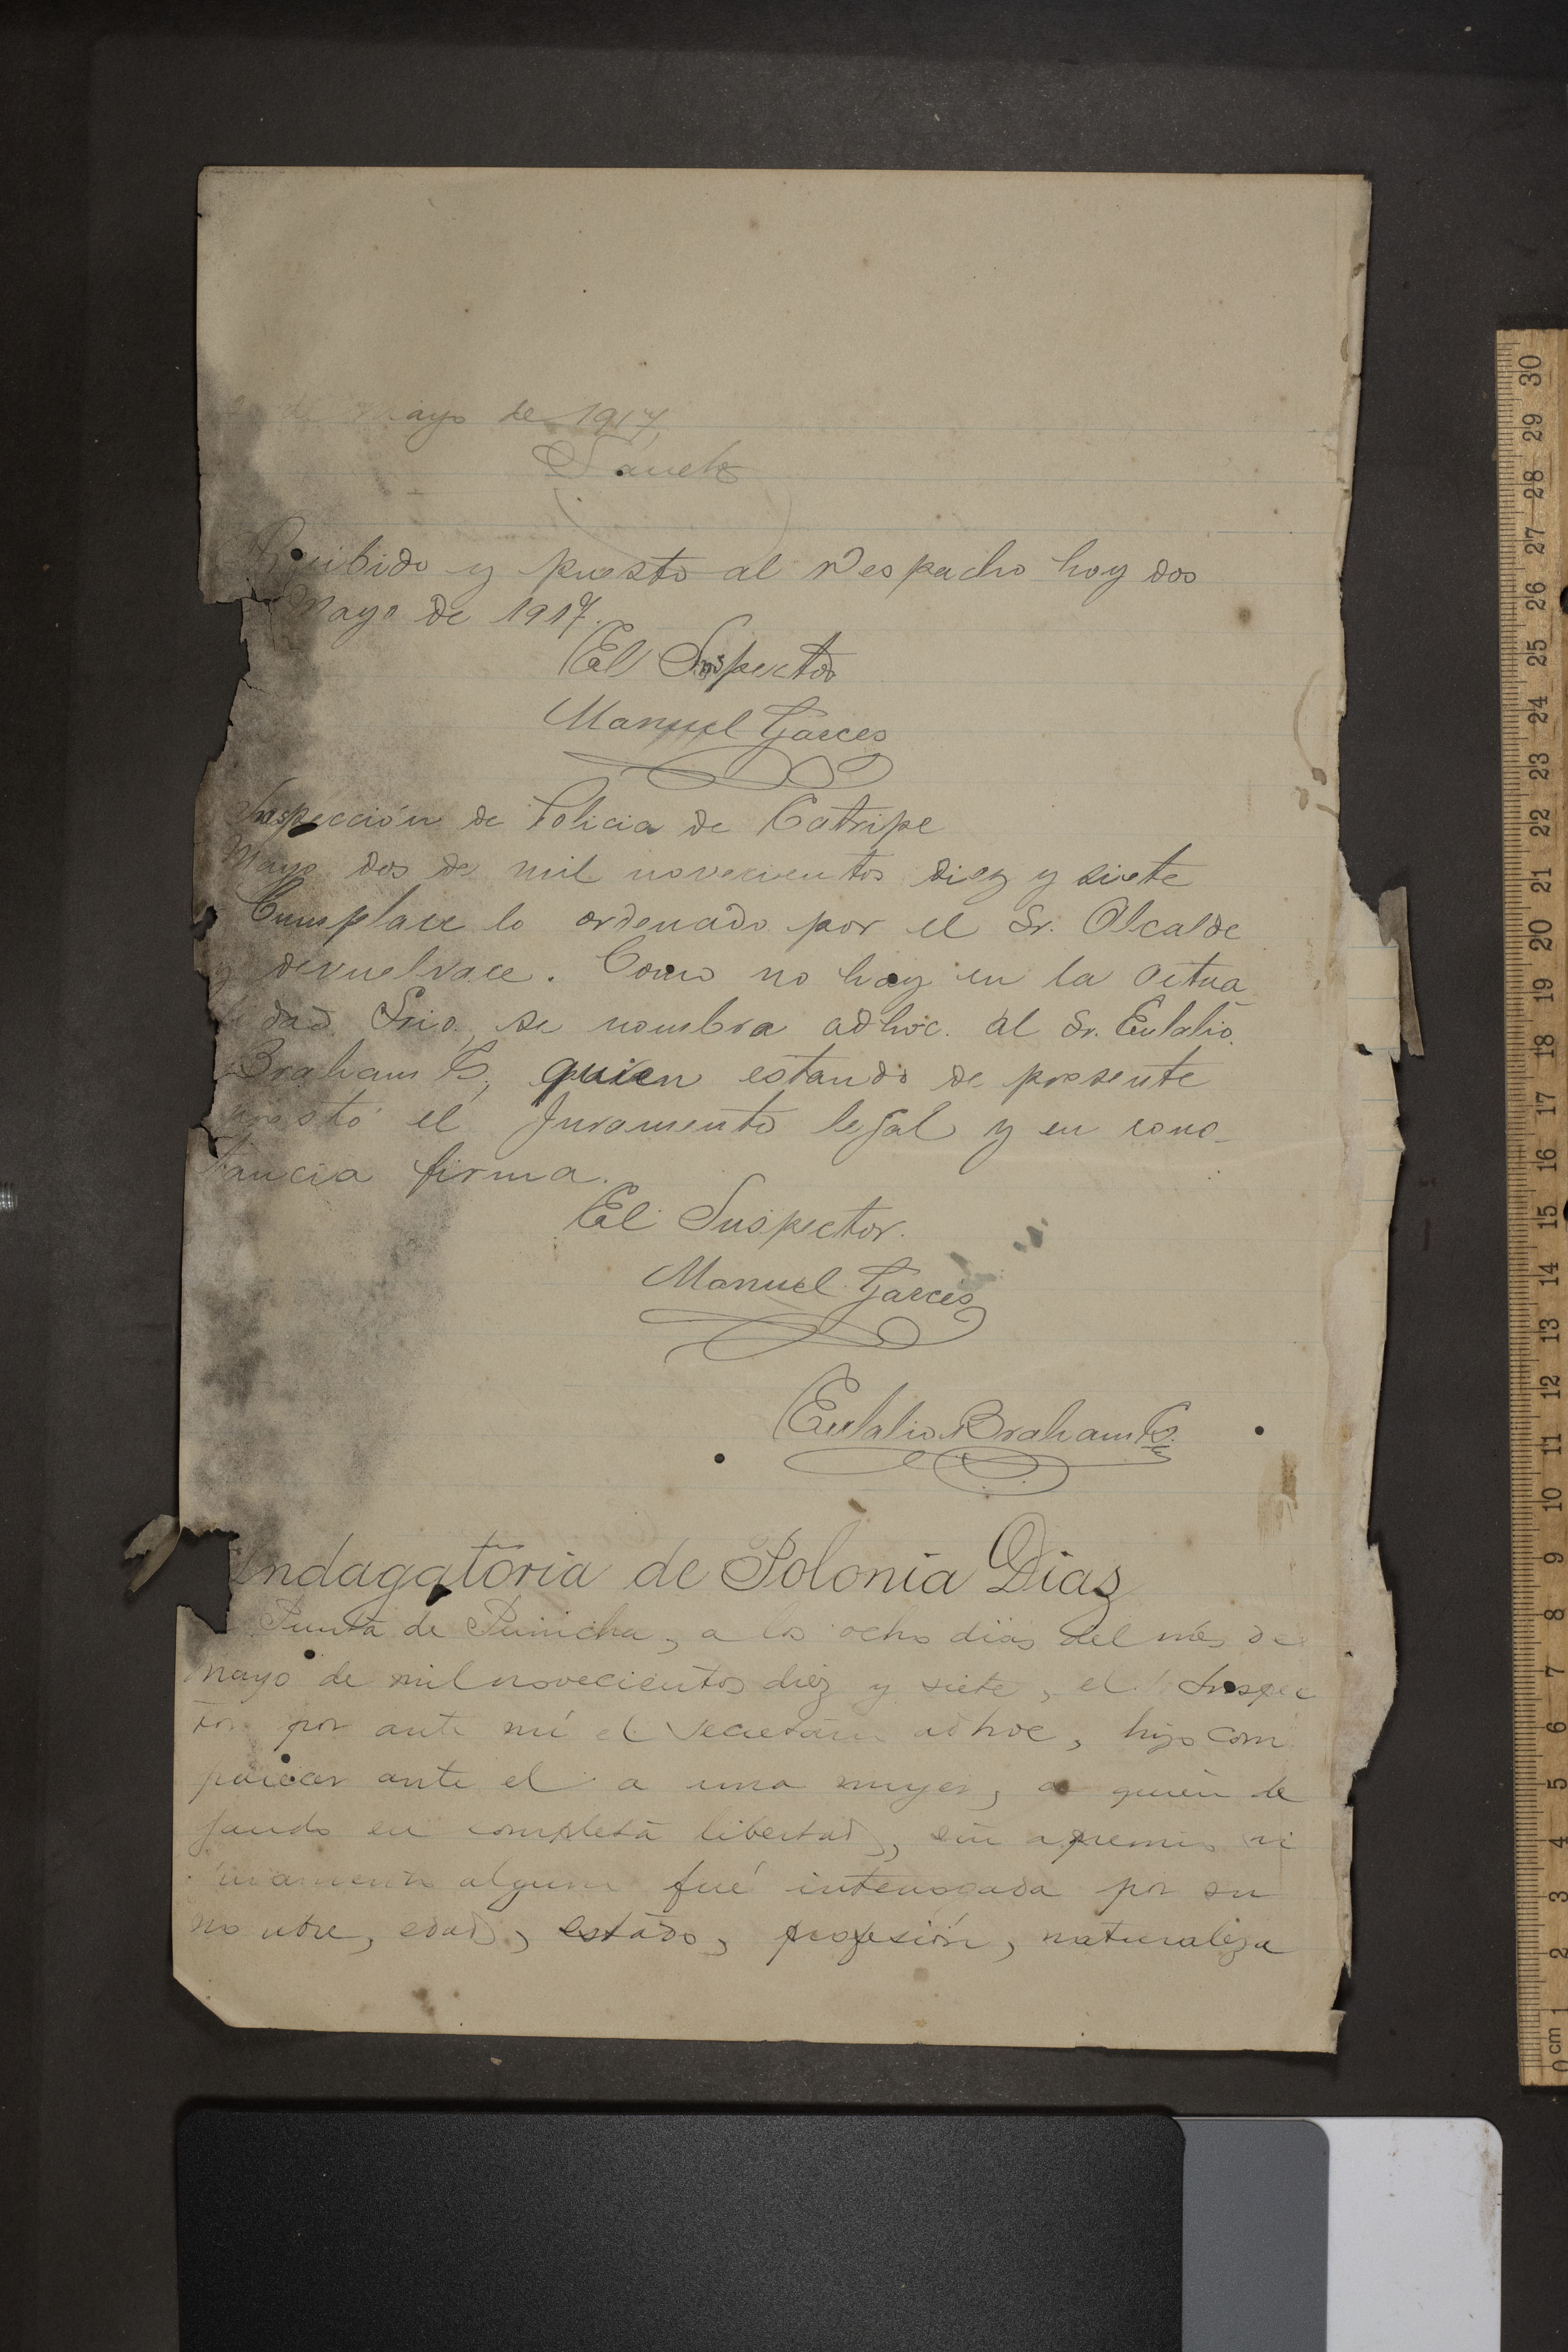 de Mayo de 1917,
Recibido y puesto al Despacho hoy dos
Mayo de 1917.
El Inspector
Manuel Garces
Inspección de Policia de Catripe
Mayo dos de mil novecientos diez y siete
Cumplace lo ordenado por el Sr. Alcalde
y devuelvace. Como no hay en la actua
lidad Srio, se nombra adhoc. al Sr. Eulalio
Braham C., quien estando de presente
prestó el juramento legal y en cons-
tancia firma.
El Inspector.
Manuel Garces
Eulalio Braham C.
Indagatoria de Polonia Diaz
Punta de Purricha, a los ocho dias del mes de
mayo de mil novecientos diez y siete, el Inspec
tor por ante mí el Secretario adhoc, hizo com
parecer ante el a una mujer, a quien de
jando en completa libertad, sin apremio ni
alguno fué interrogada por su
nombre, edad, estado, profesión, naturaleza